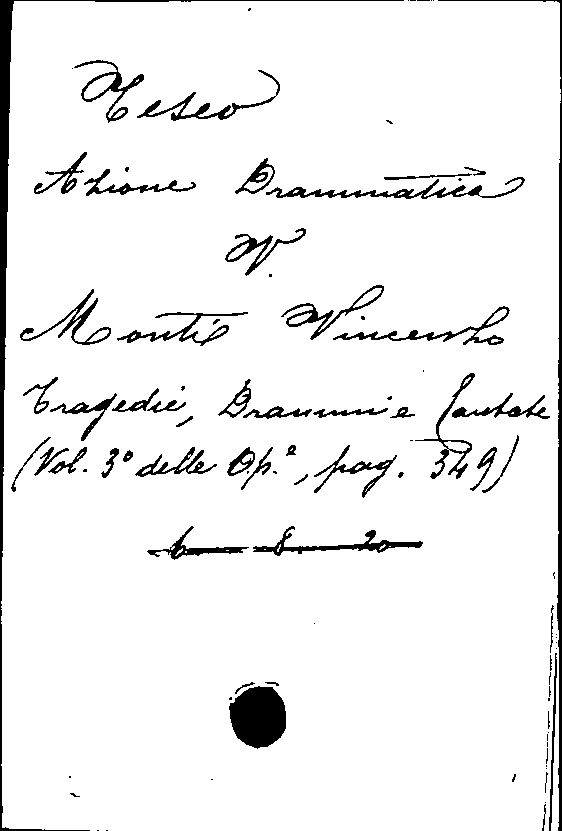 Teseo
Azione Drammatica
V.
Monti Vincenzo
Tragedie, Drammi e Cantate
(Vol. 3° delle Op.e, pag. 349)
6 8 20